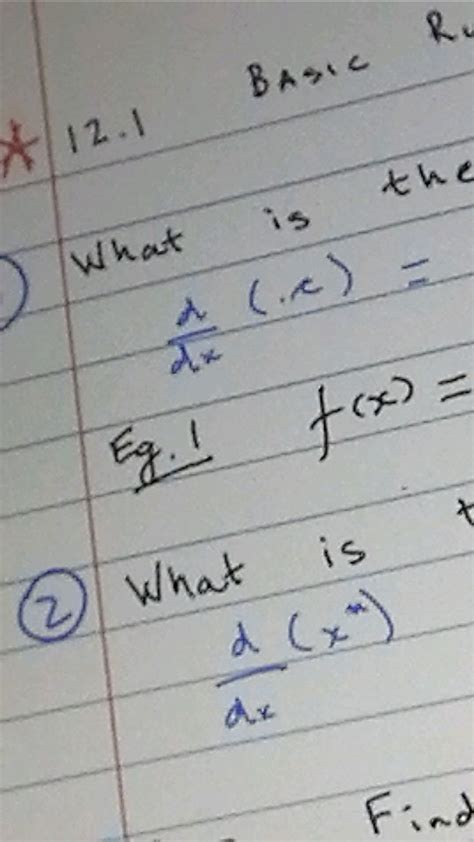 * 12.1 Basic Ru
What is the
d/dx (.c) =
Eg. 1 f(x) =
② What is t
d/dx (xⁿ)
Find